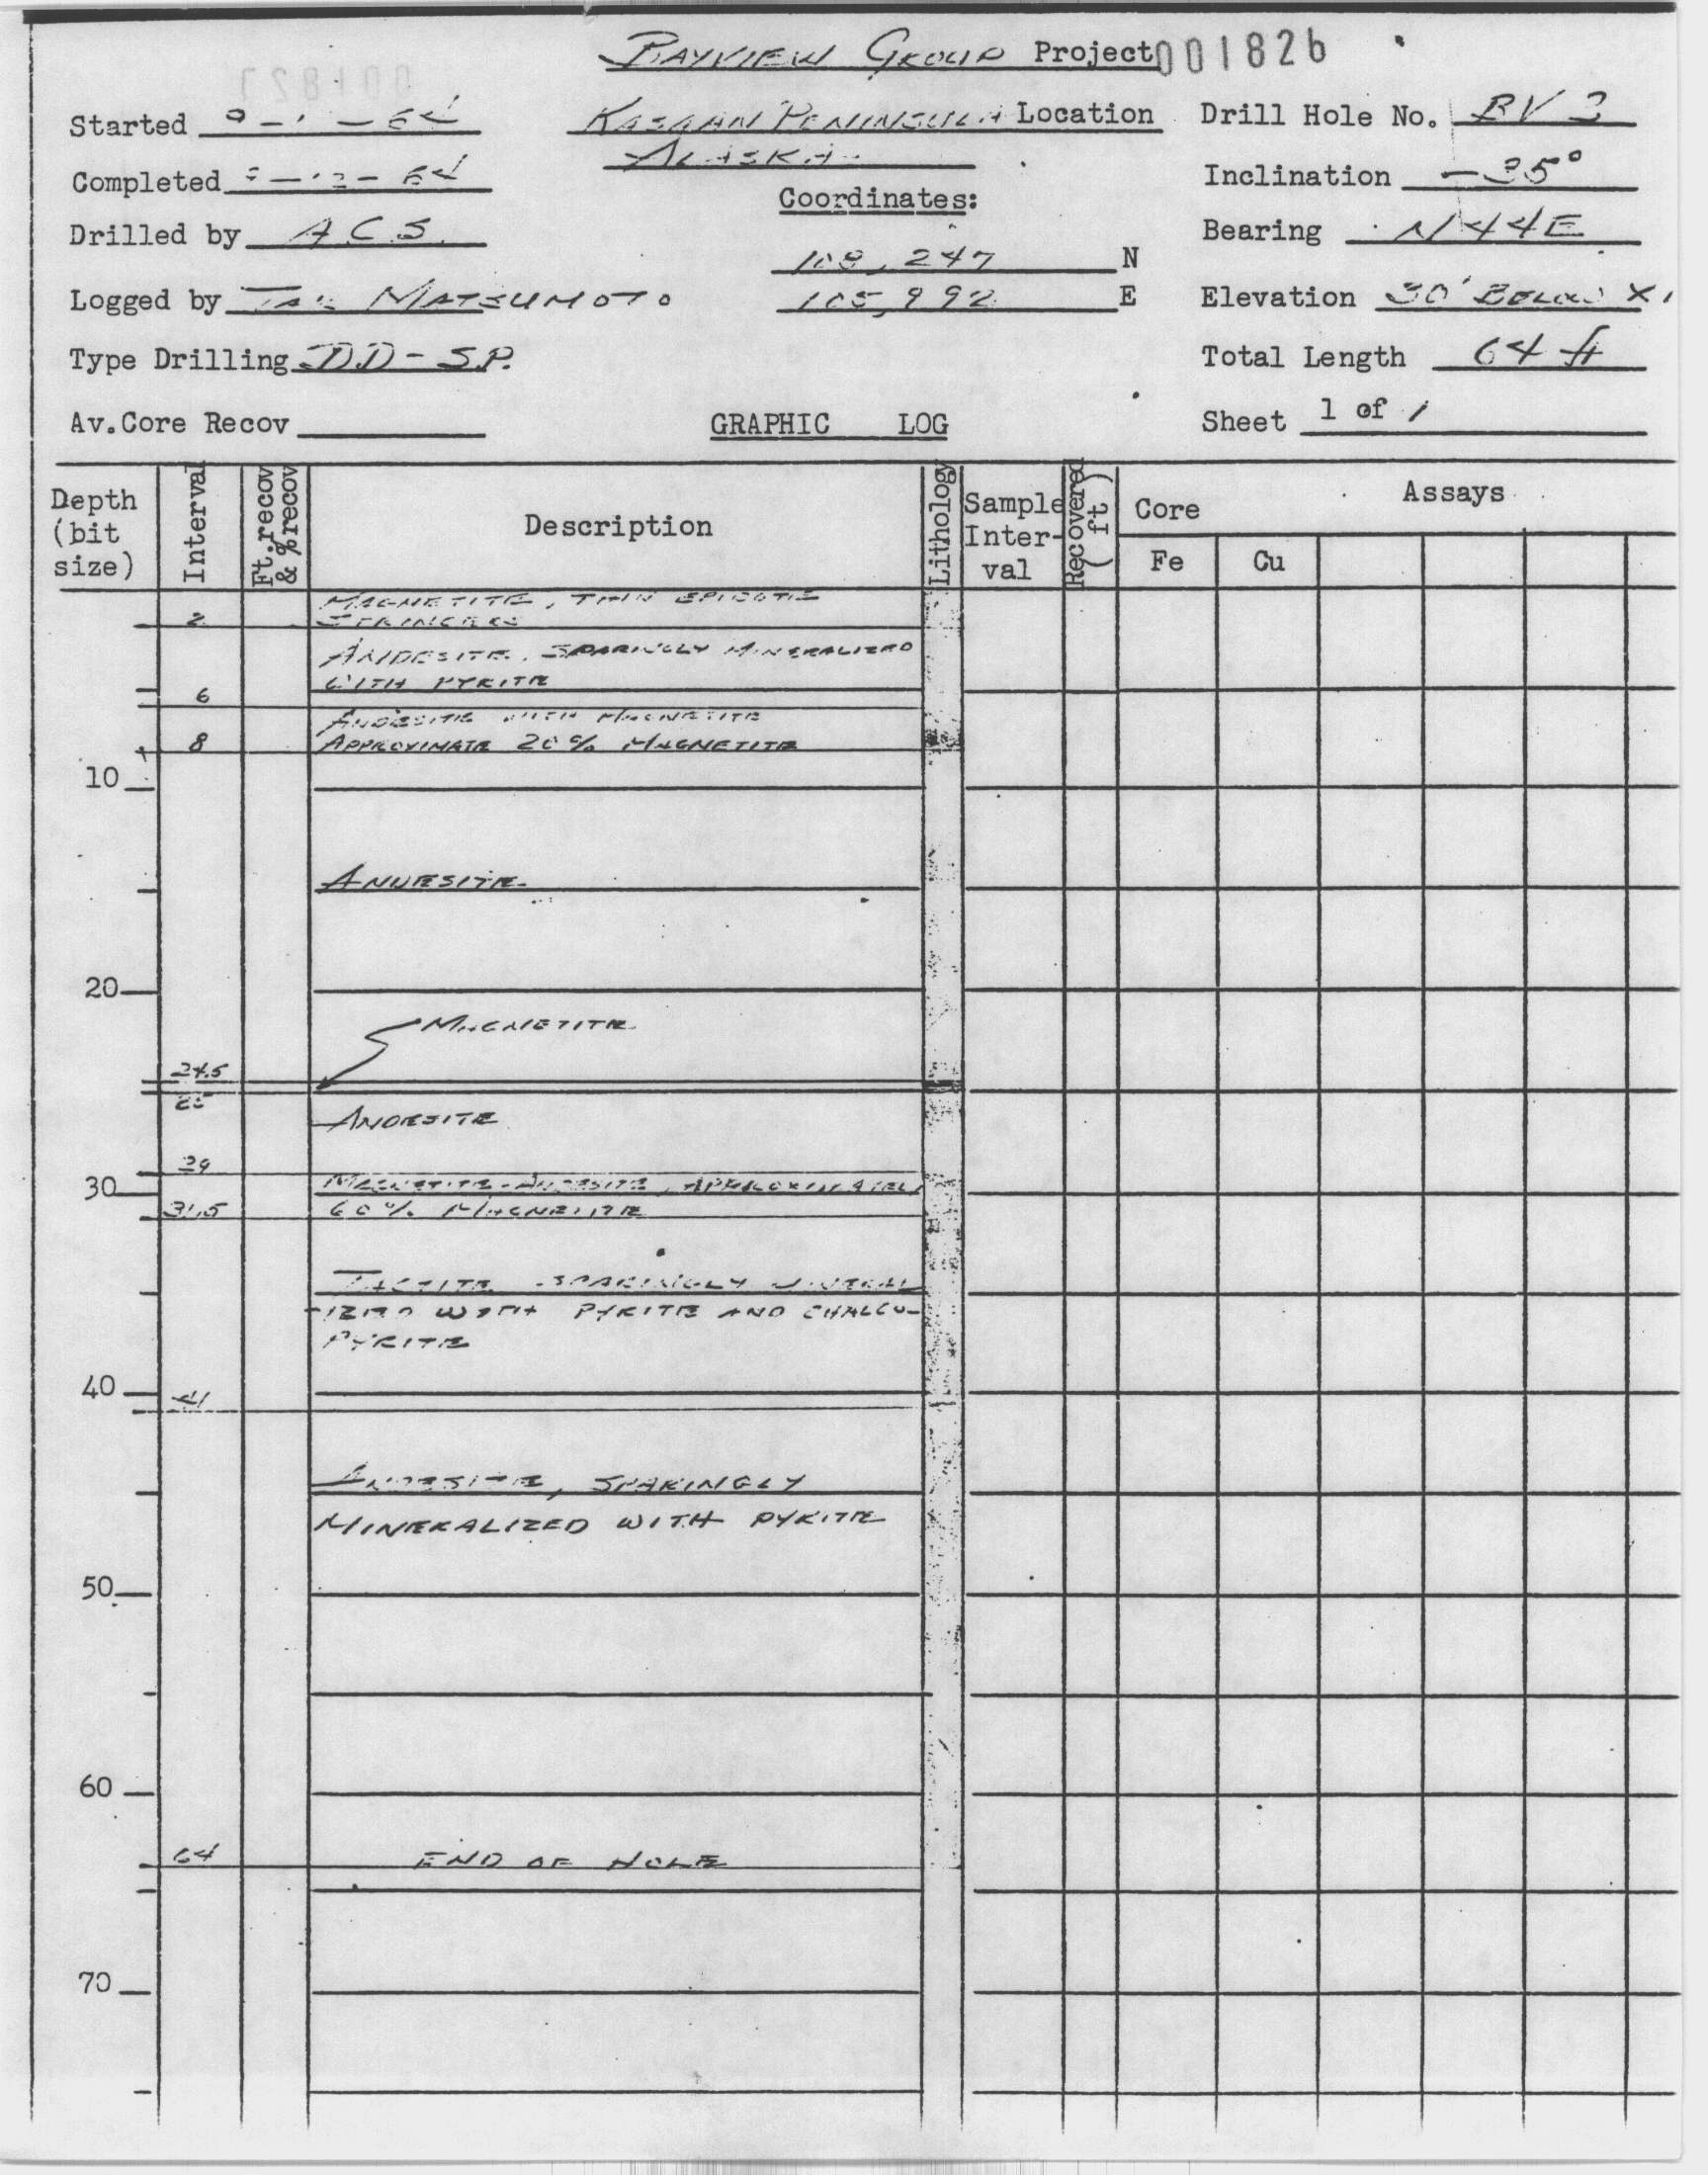 BAYVIEW GROUP Project 001826
Started
KASAAN PENINSULA Location
ALASKA
Drill Hole No. BV
Completed
Inclination -35°
Coordinates:
Drilled by A.C.S.
Bearing N44E
108,247 N
Logged by MATSUMOTO
105,992 E
Elevation 30' BELOW X1
Type Drilling DD-S.P.
Total Length 64 ft
Av.Core Recov
GRAPHIC LOG
Sheet 1 of 1
Depth (bit size)
Interval
Ft.recov & %recov
Description
Lithology
Sample Inter-val
Recovered (ft)
Core
Assays
Fe
Cu
MAGNETITE, THIN EPIDOTE
2 STRINGERS
ANDESITE, SPARINGLY MINERALIZED
6 WITH PYRITE
ANDESITE WITH MAGNETITE
8 APPROXIMATE 20% MAGNETITE
10
ANDESITE
20
MAGNETITE
24.5
25
ANDESITE
29
30 MAGNETITE-ANDESITE, APPROXIMATELY
31.5 60% MAGNETITE
TACTITE SPARINGLY MINERAL
-IZED WITH PYRITE AND CHALCO-
PYRITE
40
41
ANDESITE, SPARINGLY
MINERALIZED WITH PYRITE
50
60
64 END OF HOLE
70